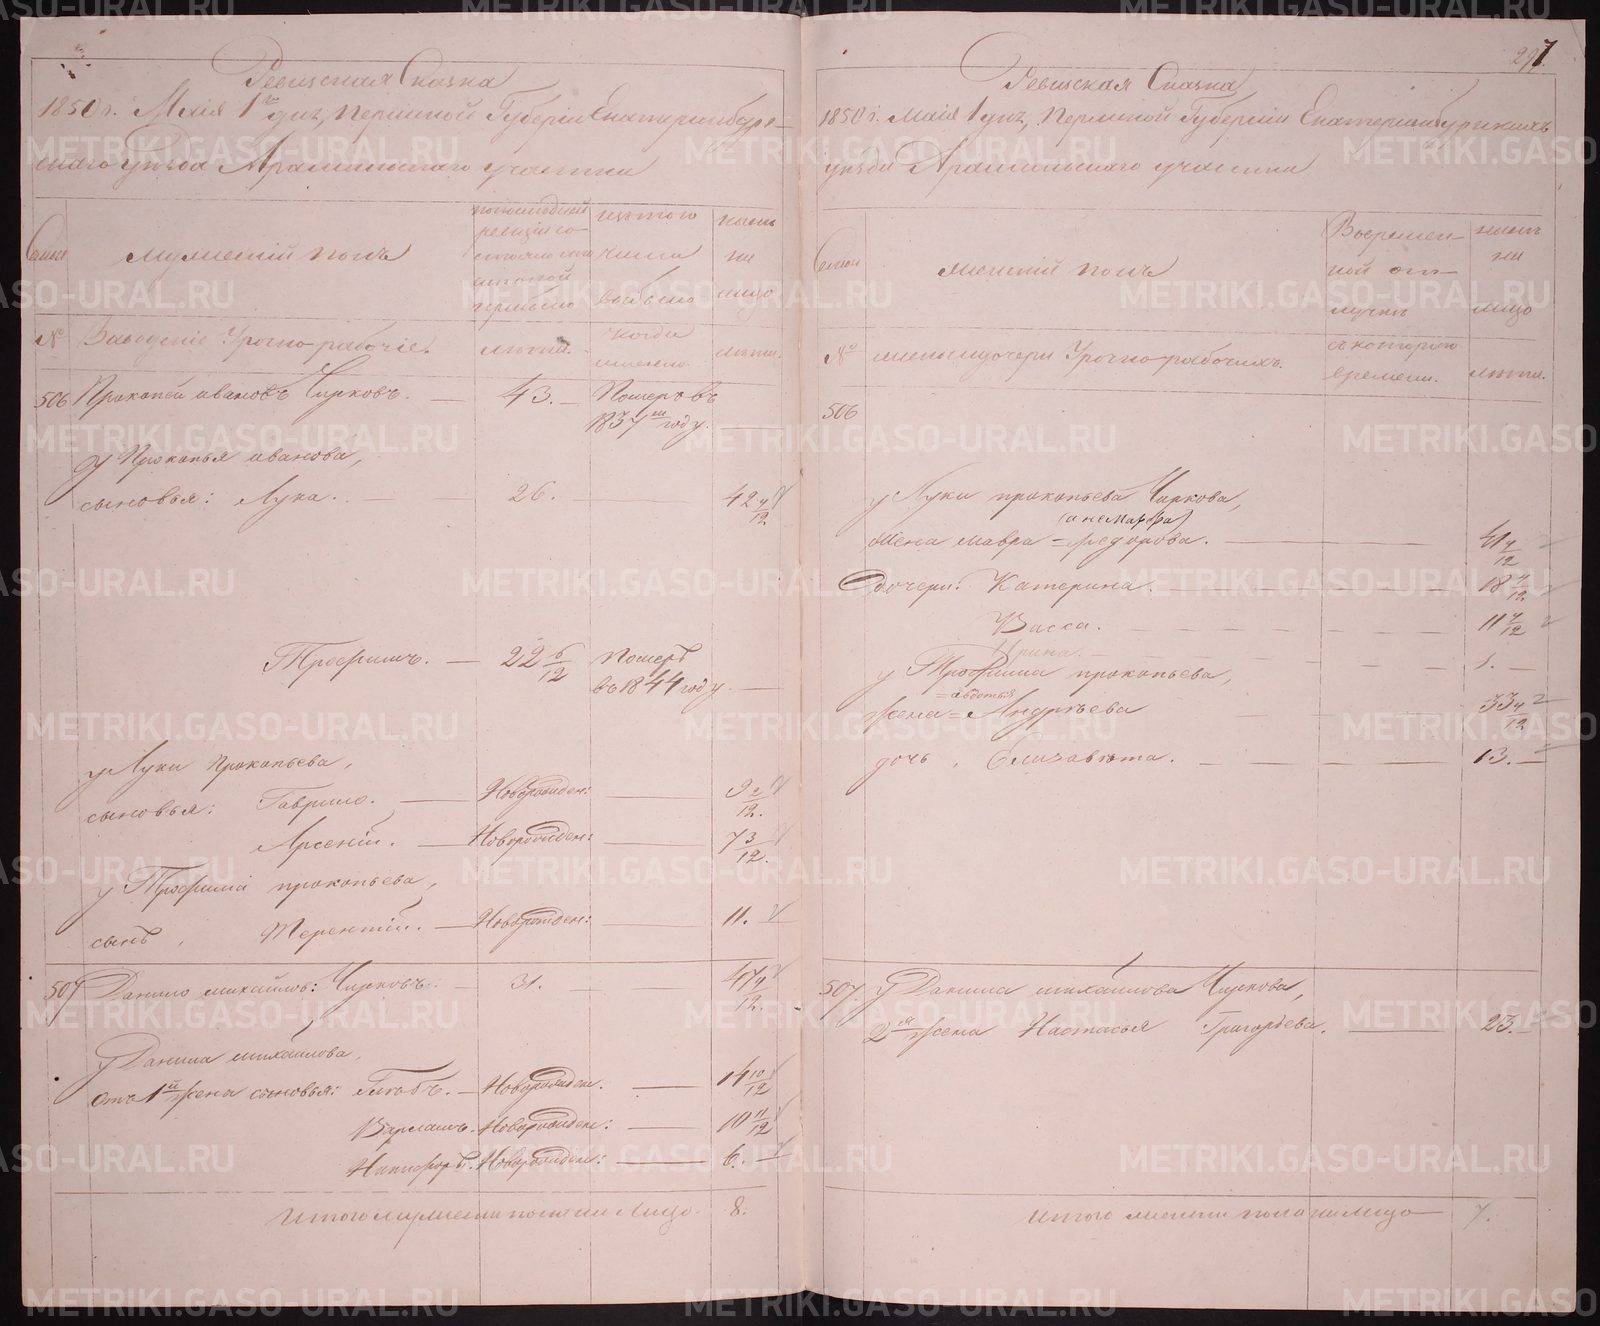 Ревизская Сказка
1850 г. Маія 1го дня, Пермской Губерніи Екатеринбург-
скаго уѣзда Арамильскаго участка
Семьи
мужескій полъ
по последней
ревизіи со-
стояло и
после оной
прибыло
изъ того
числа
выбыло
нынѣ
на
лицо
№
Заводскіе Урочно рабочіе.
лѣта.
когда
именно.
лѣта.
506 Прокопей ивановъ Чирковъ. — 43. — Померъ въ
1837м году. —
у Прокопья иванова,
сыновья: Лука. — 26. — 42 4/12
Трофимъ. — 22 6/12 Померъ
въ 1844 году. —
у Луки Прокопьева,
сыновья: Гаврило. — Новорожден: — 9 2/12.
Арсеній. — Новорожден: — 7 3/12.
у Трофима прокопьева,
сынъ, Терентій. — Новорожден: — 11.
507 Данило михайлов: Чирковъ. — 31. — 47 4/12.
у Данила михайлова,
отъ 1й жены сыновья: Глебъ. — Новорожден. — 14 10/12
Варламъ. Новорожден: — 10 11/12
Никифоръ. Новорожден: — 6. —
Итого мужеска пола на Лицо. 8.
297.
Ревизская Сказка
1850 г. Маія 1 дня, Пермской Губерніи Екатеринбургскаго
уѣзда Арамильскаго участка
Семьи
женскій полъ
Во времен-
ной от-
лучкѣ
нынѣ
на
лицо
№
жены и дочери Урочно-рабочихъ.
съ котораго
времени.
лѣта.
506
у Луки прокопьева Чиркова,
(а не Марфа)
жена мавра = федорова. — 41 4/12
дочери: Катерина. — 18 4/12
Васса. — 11 4/12
Ирина. — 1. —
у Трофима прокопьева,
= авдотья
жена = Андреева — 33 4/12
дочь, Елизавета. — 13. —
507. у Данила михайлова Чиркова,
2я жена Настасья Григорьева. — 23. —
Итого женска пола на лицо — 7.
METRIKI.GASO-URAL.RU